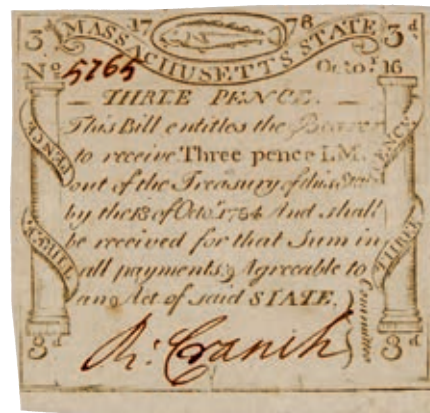 3d 17 78 3d
MASSACHUSETTS STATE
No 5765 Octor. 16
THREE PENCE.
This Bill entitles the Bearer
to receive Three pence LM.
out of the Treasury of this State
by the 18 of Octo.r 1784 And shall
be received for that Sum in
all payments, Agreeable to
an Act of said STATE.
PENCE
THREE
PENCE
THREE
Committee
3d R: Cranch 3d